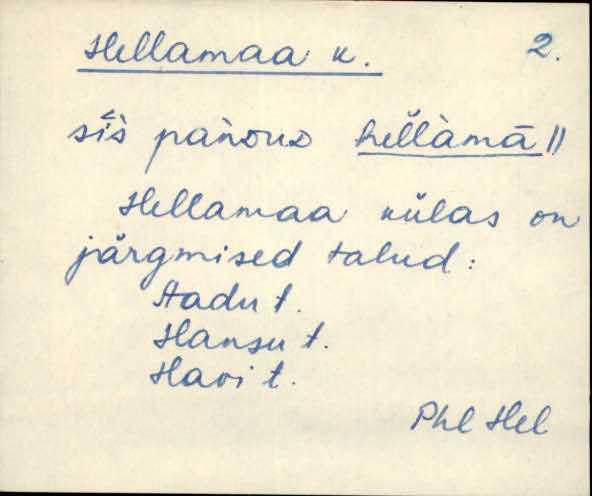 Hellamaa k. 2.
sìi̭s pańdud hel̆làmā ||
Hellamaa külas on
järgmised talud:
Aadu t.
Hansu t.
Havi t.
Phl Hel